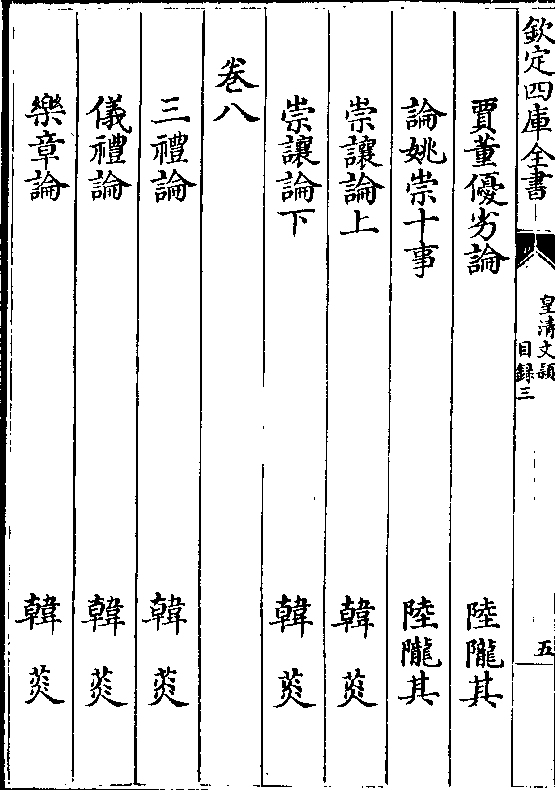 欽定四庫全書
皇清文頴
目録三
五
賈董優劣論 陸隴其
論姚崇十事 陸隴其
崇讓論上 韓菼
崇讓論下 韓菼
卷八
三禮論 韓菼
儀禮論 韓菼
樂章論 韓菼